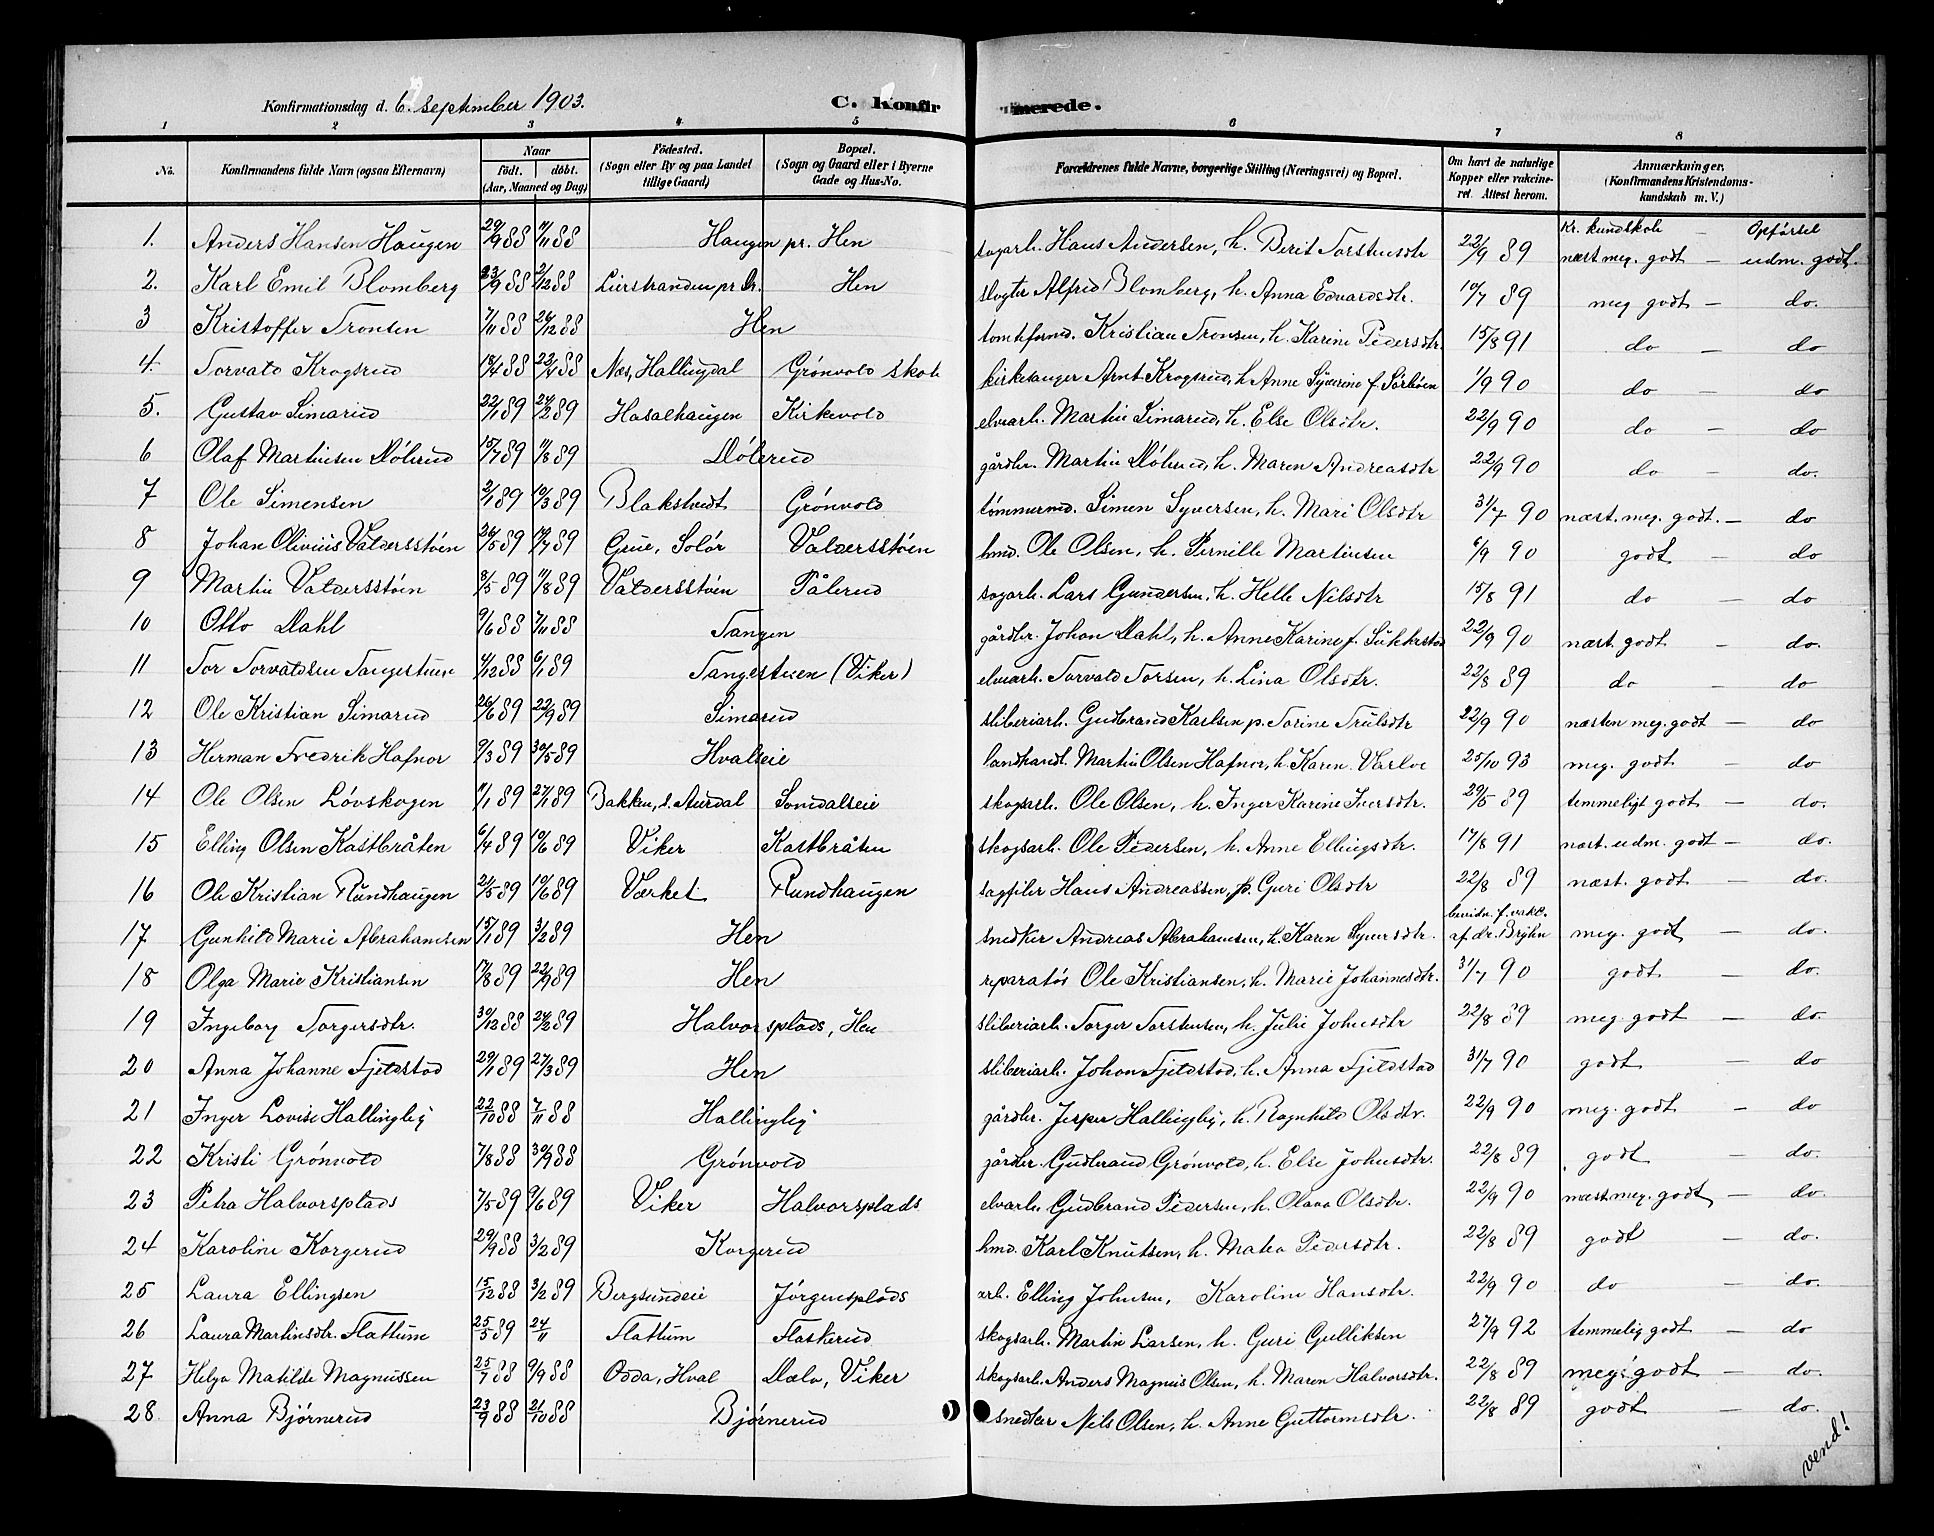 Konfirmationsdag d. 6. september 1903. C. Konfirmerede.
1 2 3 4 5 6 7 8
No. Konfirmandens fulde Navn (ogsaa Efternavn) Naar födt. döbt. (Aar, Maaned og Dag) Födested. (Sogn eller By og paa Landet tillige Gaard) Bopæl. (Sogn og Gaard eller i Byerne Gade og Hus-No. Forældrenes fulde Navne, borgerlige Stilling (Næringsvei) og Bopæl. Om havt de naturlige Kopper eller vakcineret. Attest herom. Anmærkninger. (Konfirmandens Kristendomskundskab m. V.)
Kr. kundskab — Opførsel
1. Anders Hansen Haugen 29/9 88 11/11 88 Haugen pr. Hen sagarb. Hans Andersen, h. Berit Torstensdtr 22/9 89 næst meg. godt — udm. godt.
2. Karl Emil Blomberg 23/9 88 2/12 88 Lierstranden pr. Dr. Hen slagter Alfred Blomberg, h. Anna Edvardsdtr. 10/7 89 meg godt — do.
3 Kristoffer Tronsen 7/11 88 26/12 88 Hen tomteformd. Kristian Tronsen, h. Karine Pedersdtr. 15/8 91 do — do
4. Torvald Krogsrud 18/4 88 22/4 88 Næs, Hallingdal Grønvold skole kirkesanger Arnt Krogsrud, h. Anne Syverine f. Sørhöen 1/9 90 do — do
5. Gustav Simarud 22/1 89 24/2 89 Hasalhaugen Kirkevold elvearb. Martin Simarud, h. Else Olsdtr. 22/9 90 do — do
6 Olaf Martinsen Dölerud 15/7 89 11/8 89 Dölerud gårdbr. Martin Dölerud, h. Maren Andreasdtr 22/9 90 do — do.
7 Ole Simensen 2/1 89 10/3 89 Blakstvedt Grønvold tömmermd. Simen Syversen, h. Mari Olsdtr 31/7 90 næst. meg. godt. — do
8 Johan Olivius Valdersstöen 26/5 89 14/7 89 Grue, Solör Valdersstöen hmd. Ole Olsen, h. Pernille Martinsen 6/9 90 godt — do
9 Martin Valdersstöen 8/5 89 11/8 89 Valdersstöen Pålerud sagarb. Lars Gundersen, h. Helle Nilsdtr 15/8 91 do — do
10 Otto Dahl 9/6 88 7/11 88 Tangen gårdbr. Johan Dahl, h. Anne Karine f. 22/9 90 næst godt — do.
11 Tor Torvaldsen Tangestuen 4/12 88 6/1 89 Tangestuen (Viker) elvearb. Torvald Torsen, h. Lina Olsdtr. 22/8 89 do — do
12 Ole Kristian Simarud 26/6 89 22/9 89 Simarud sliberiarb. Gudbrand Karlsen p. Torine Trulsdtr 22/9 90 næsten meg. godt — do
13 Herman Fredrik Hafnor 9/3 89 30/5 89 Hvalseie landhandl. Martin Olsen Hafnor, h. Karen Varlo 25/10 93 meg. godt — do
14 Ole Olsen Lövskogen 11/1 89 27/1 89 Bakken, s. Aurdal Somdalseie skogsarb. Ole Olsen, h. Inger Karine Iversdtr. 29/5 89 temmeligt godt — do.
15 Elling Olsen Kastbråten 6/4 89 10/6 89 Viker Kastbråten skogsarb. Ole Pedersen, h. Anne Ellingsdtr. 17/8 91 næst. udm. godt — do.
16 Ole Kristian Rundhaugen 21/5 89 10/6 89 Værket Rundhaugen sagfiler Hans Andreassen, p. Guri Olsdtr 22/8 89 næst. godt — do.
17 Gunhild Marie Abrahamsen 15/1 89 3/2 89 Hen snedker Andreas Abrahamsen, h. Karen Syversdtr. bevidn. f. vakc. af dr. Bryhn meg. godt — do.
18 Olga Marie Kristiansen 17/8 89 22/9 89 Hen reparatös Ole Kristiansen, h. Marie Johannesdtr. 31/7 90 godt — do.
19 Ingeborg Torgersdtr. 30/12 88 24/2 89 Halvorsplads, Hen sliberiarb. Torger Torstensen, h. Julie Johnsdtr 22/8 89 meg. godt — do.
20 Anna Johanne Fjeldstad 29/1 89 27/3 89 Hen sliberiarb. Johan Fjeldstad, h. Anna Fjeldstad 31/7 90 godt — do
21 Inger Lovise Hallingby 22/10 88 7/11 88 Hallingby gårdbr. Jesper Hallingby, h. Ragnhild Olsdtr. 22/9 90 meg. godt — do
22 Kristi Grönvold 7/8 88 30/9 88 Grönvold gårdbr. Gudbrand Grönvold, h. Else Johnsdtr. 22/8 89 godt — do.
23 Petra Halvorsplads 7/5 89 9/6 89 Viker Halvorsplads elvarb. Gudbrand Pedersen, h. Olava Olsdtr. 22/9 90 næst meg. godt — do.
24 Karoline Korgerud 29/9 88 3/2 89 Korgerud hmd. Karl Knutsen, h. Matea Pedersdtr. 22/8 89 godt — do.
25 Laura Ellingsen 15/12 88 3/2 89 Bergsundeie Jörgensplads arb. Elling Johnsen, Karoline Hansdtr. 22/9 90 do — do.
26 Laura Martinsdtr. Flattum 25/5 89 24/11 Flattum Flaskerud skogsarb. Martin Larsen, h. Guri Gulliksen 27/9 92 temmelig godt — do
27 Helga Matilde Magnussen 25/7 88 9/9 88 Odda, Hval Dælo, Viker skogsarb. Anders Magnus Olsen, h. Maren Halvorsdtr. 22/8 89 meg. godt — do.
28. Anna Björnerud 23/9 88 21/10 88 Björnerud snedker Nils Olsen, h. Anne Guttormsdtr. 22/8 89 godt — do.
vend!